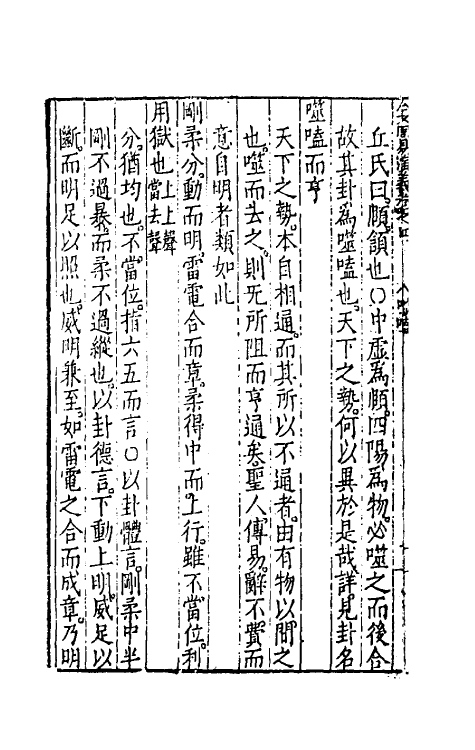 丘氏曰。頤頷也〇中虚為頤。四陽為物。必噬之而後合
故其卦為噬嗑也。天下之勢。何以異於是哉。詳見卦名
噬嗑而亨
天下之勢。本自相通。而其所以不通者。由有物以間之
也。噬而去之。則无所阻而亨通矣。聖人傳易。辭不費而
意自明者類如此
剛柔分。動而明。雷電合而章。柔得中而上行。雖不當位。利
用獄也 上上聲 當去聲
分。猶均也。不當位。指六五而言〇以卦體言。剛柔中半
剛不過暴。而柔不過縱也。以卦德言。下動上明。威足以
斷。而明足以照也。威明兼至。如雷電之合而成章。乃明